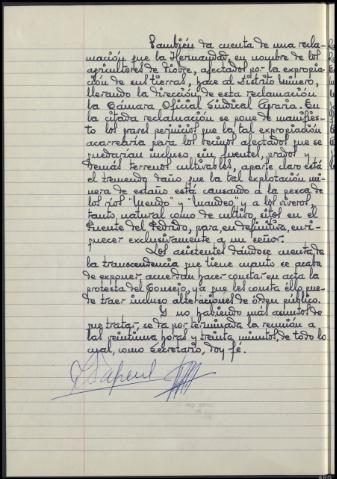 También da cuenta de una recla-
mación que la Hermandad, en nombre de los
agricultores de afectados por la expropia-
ción de sus tierras, hace al Distrito Minero,
llevando la dirección de esta reclamación
la Cámara Oficial Sindical Agraria. En
la citada reclamación se pone de manifies-
to los graves perjuicios que la tal expropiación
acarrearía para los vecinos afectados que se
quedarían incluso sin fuentes, prados y
demás terrenos cultivables, aparte claro está
el tremendo daño que la tal explotación mi-
nera de estaño está causando a la pesca de
los ríos "Mendo" y "Mandeo" y a los viveros,
tanto natural como de cultivo, sitos en el
Puente del Pedrido, para en definitiva, enri-
quecer exclusivamente a un señor.
Los asistentes dándose cuenta de
la transcendencia que tiene cuanto se acaba
de exponer, acuerdan hacer constar en acta la
protesta del Consejo, ya que les consta ello pue-
de traer incluso alteraciones de orden público.
Y no habiendo más asuntos de
que tratar, se da por terminada la reunión a
las veintiuna horas y treinta minutos, de todo lo
cual, como Secretario, doy fé.